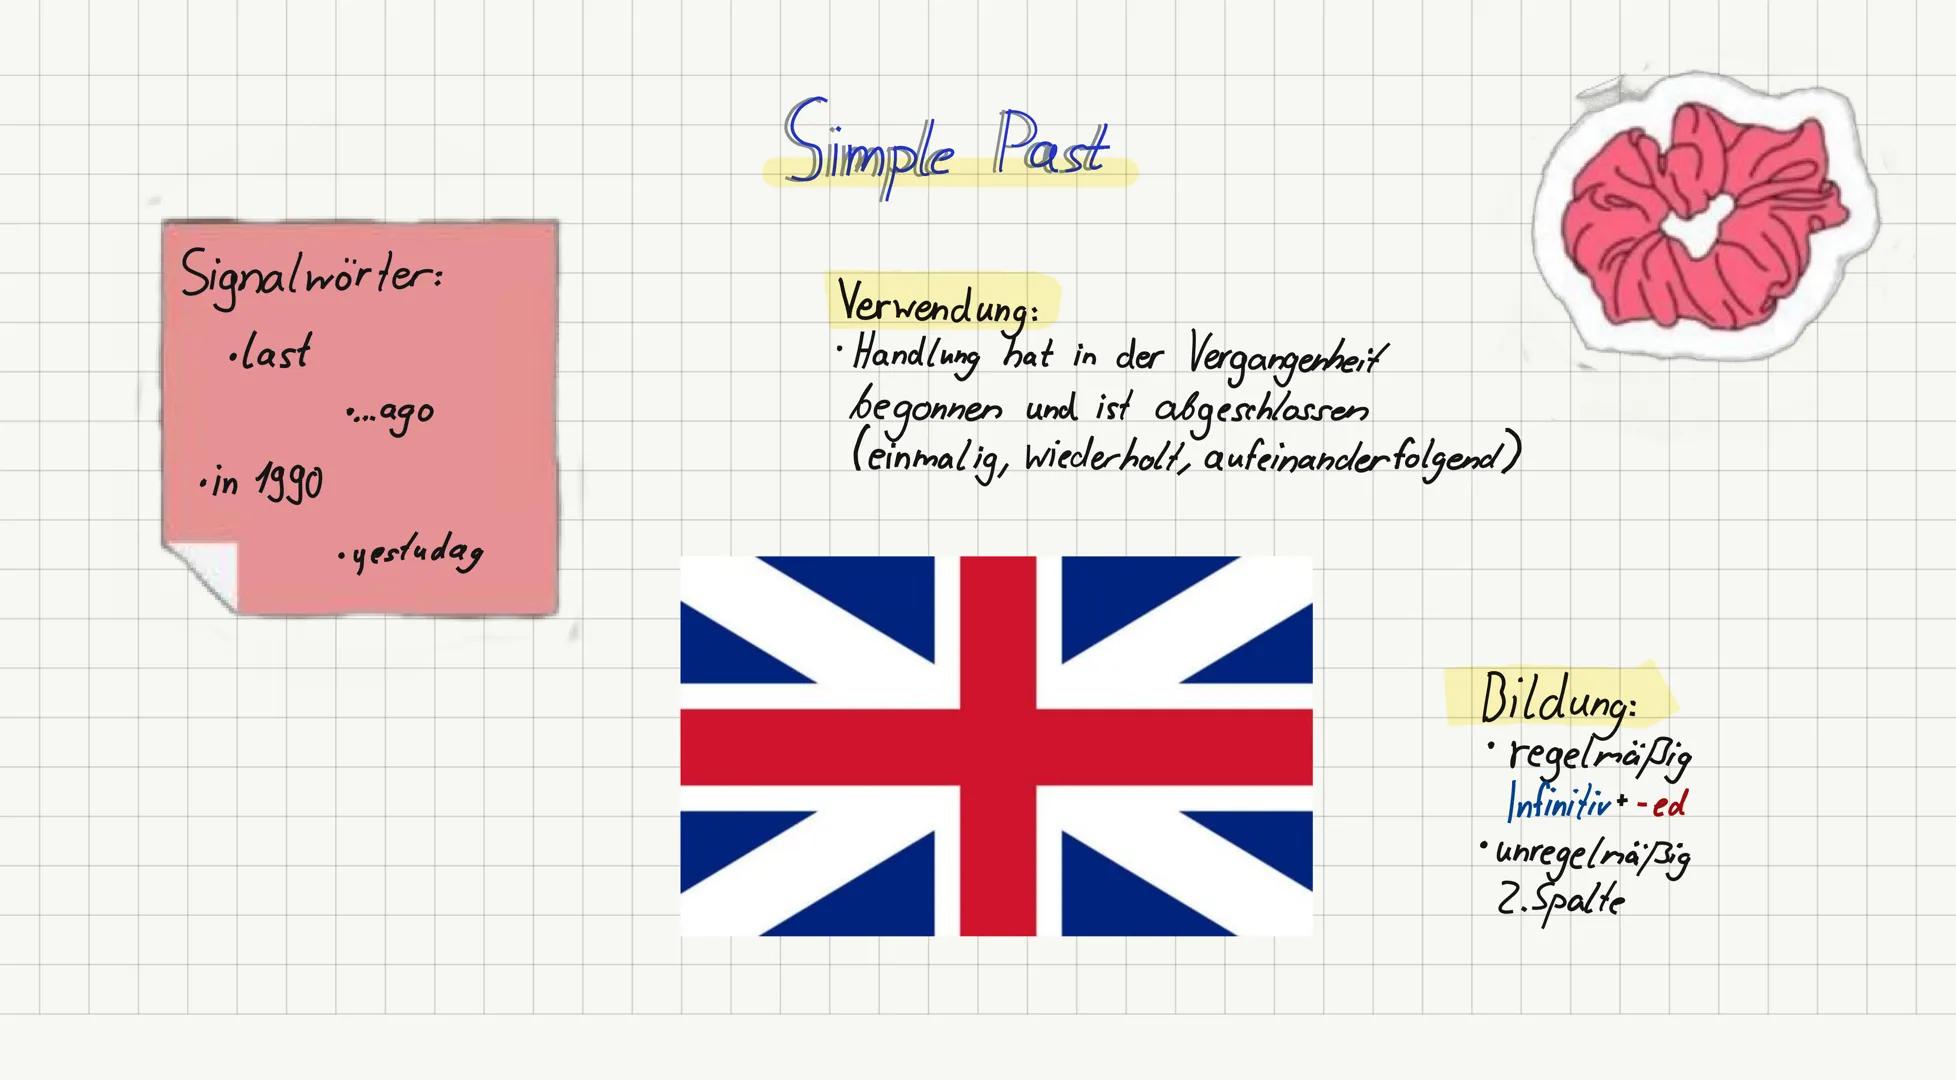 Simple Past
Signalwörter:
• last
• ...ago
• in 1990
• yestuday
Verwendung:
• Handlung hat in der Vergangenheit
begonnen und ist abgeschlossen
(einmalig, wiederholt, aufeinanderfolgend)
Bildung:
• regelmäßig
Infinitiv + -ed
• unregelmäßig
2. Spalte